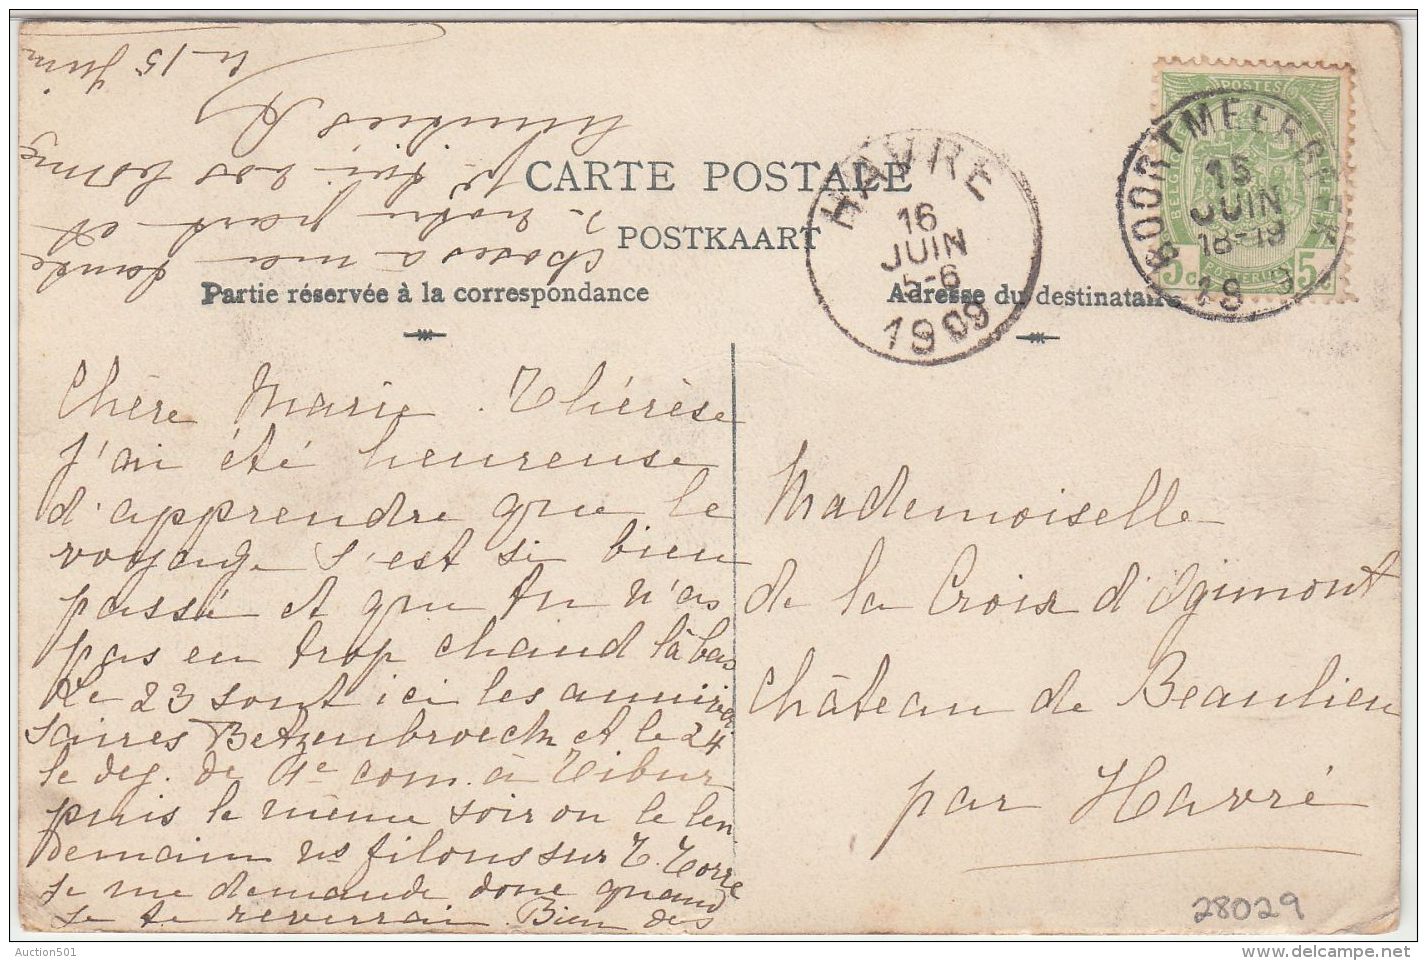 CARTE POSTALE
POSTKAART
Partie réservée à la correspondance
Adresse du destinataire
HAVRÉ
16
JUIN
5-6
1909
BOORTMEERBEEK
15
JUIN
18-19
19
POSTES
5c
5c
Chère Marie Thérèse
j'ai été heureuse
d'apprendre que le
voyage s'est si bien
passé et que tu n'as
pas eu trop chaud là bas
Le 23 sont ici les anniver
saires Betzenbroeck et le 24
le dej. de 1e com. à Tibur
puis le même soir ou le len
demain ns filons sur T. Torre
Je me demande donc quand
je te reverrai Bien des
choses à ma tante
de notre part et
à toi nos bonnes
amitiés
le 15 Juin
Mademoiselle
de la Croix d'Ogimont
Château de Beaulieu
par Havré
28029
Auction501
delcampe.net